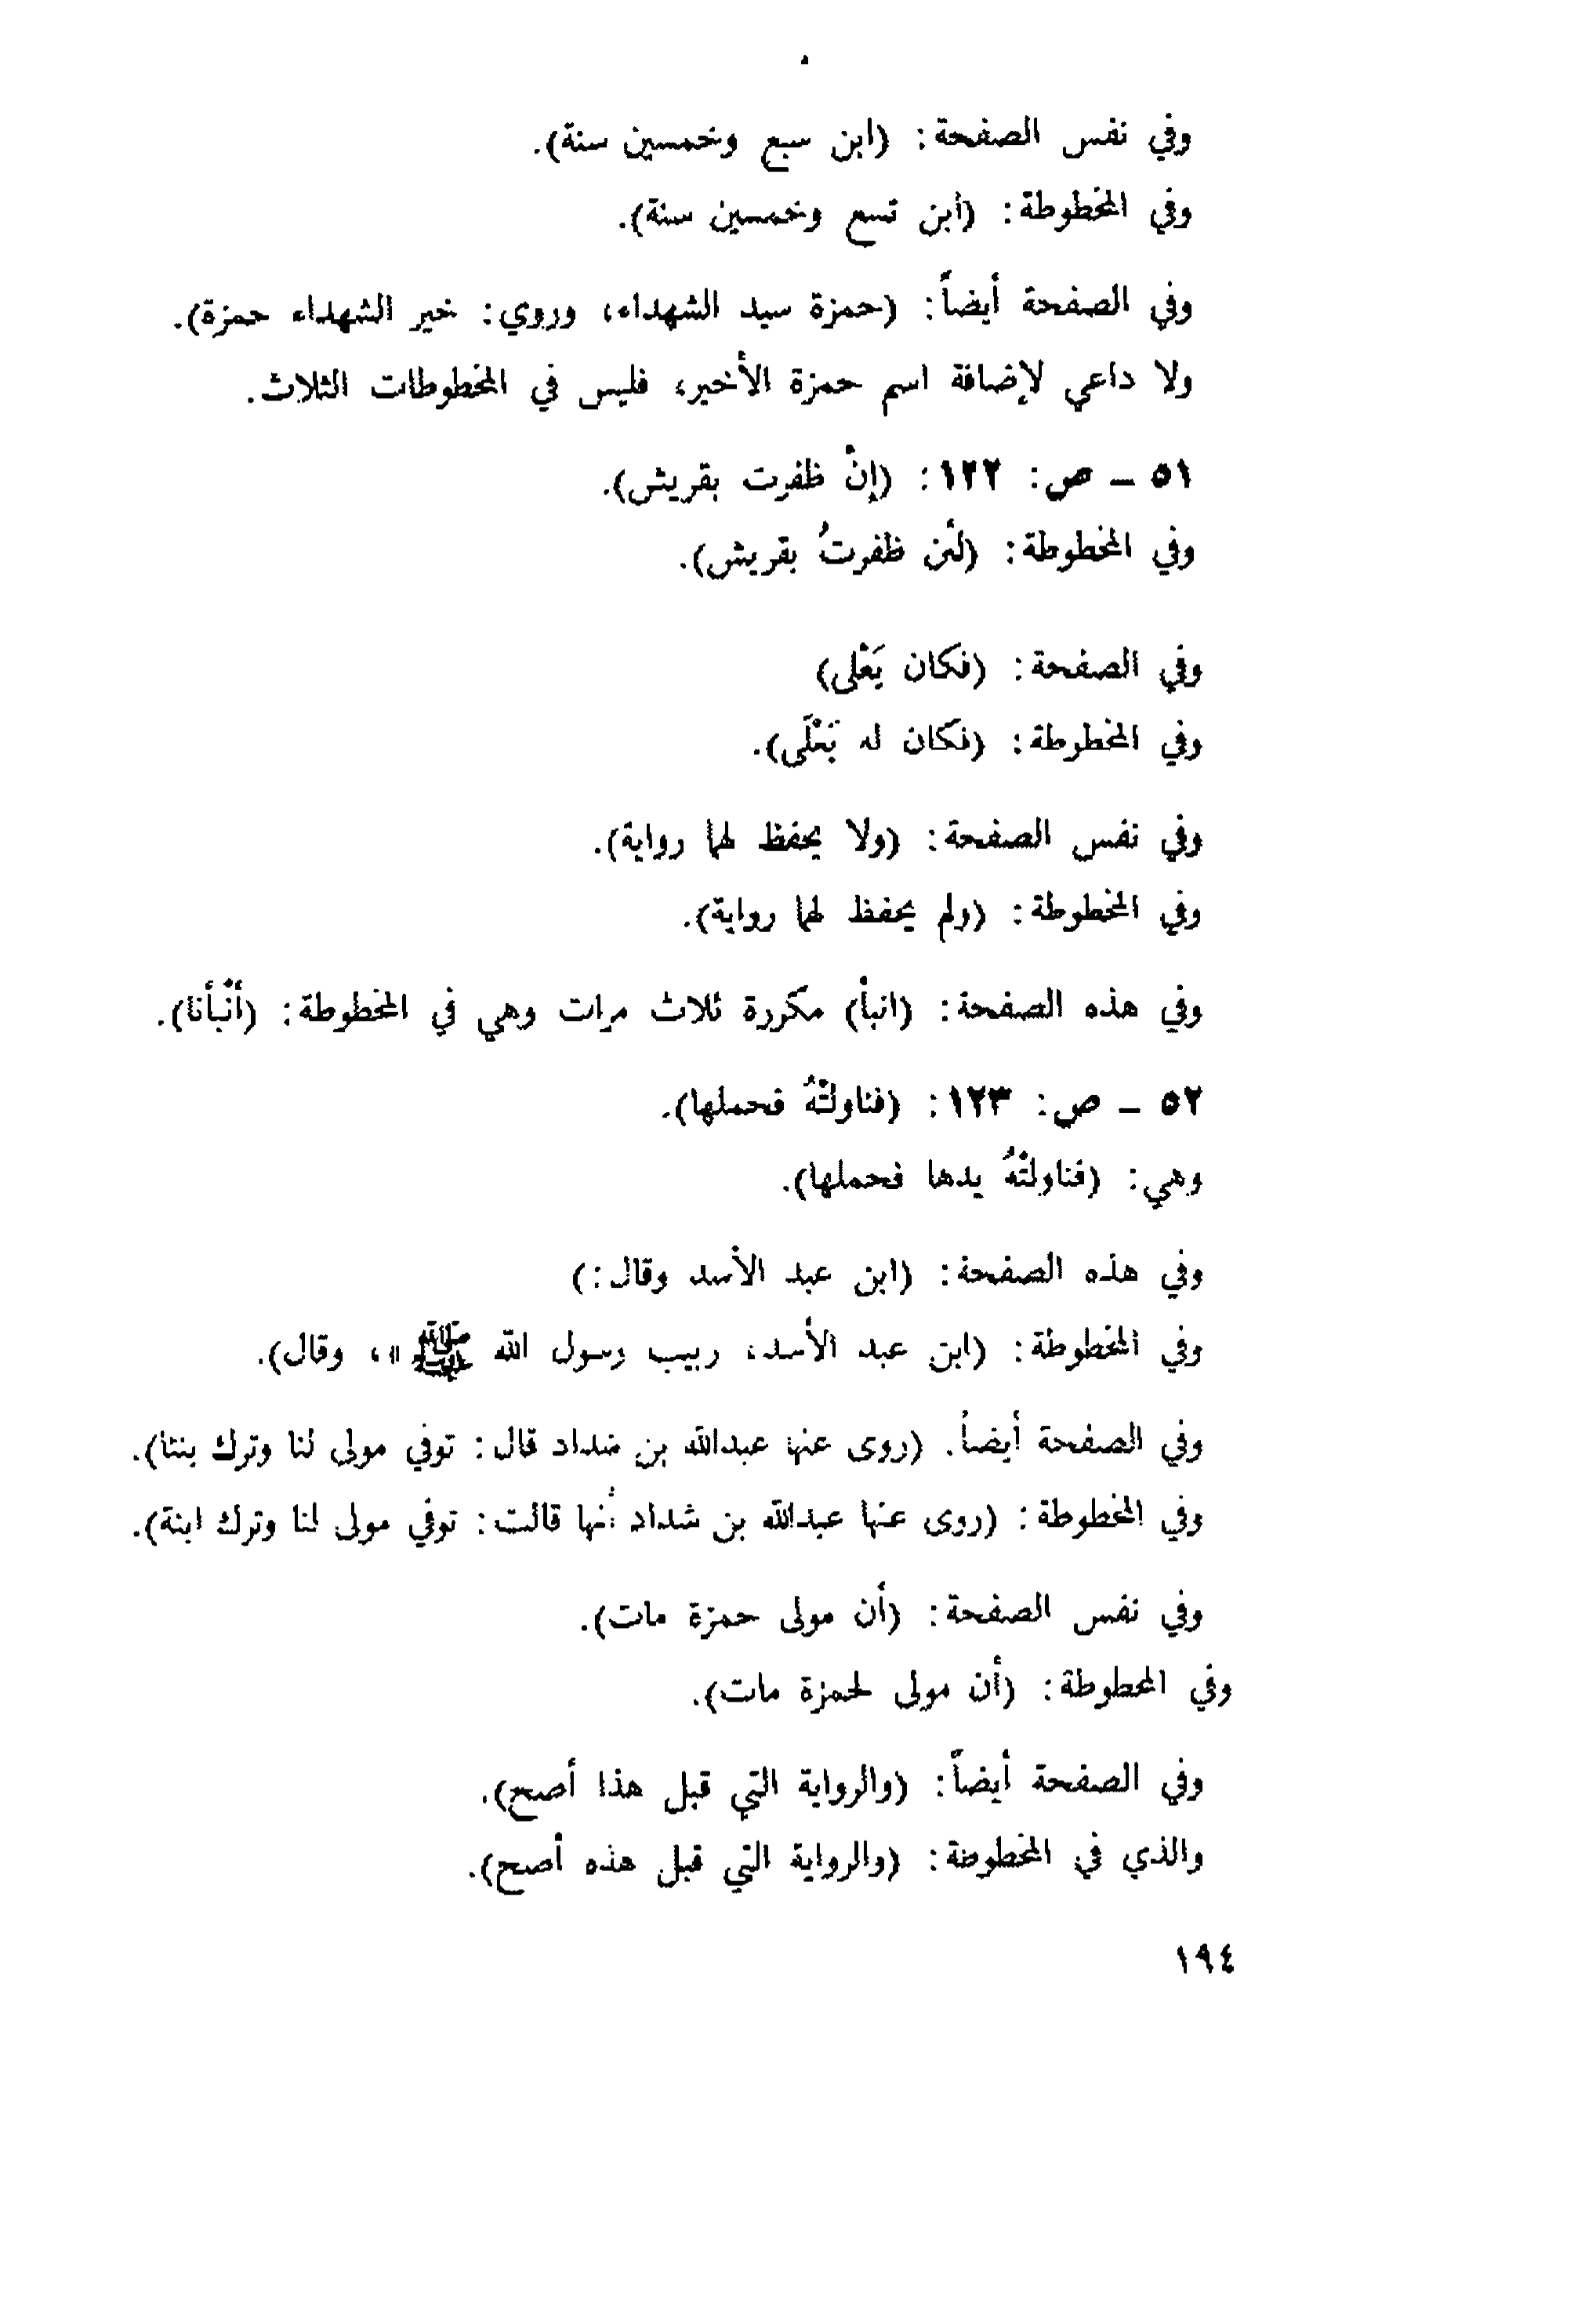 وفي نفس الصفحة: (ابن سبع وخمسين سنة).
وفي المخطوطة: (ابن تسع وخمسين سنة).
وفي الصفحة أيضاً: (حمزة سيد الشهداء، وروي: خير الشهداء حمزة).
ولا داعي لإضافة اسم حمزة الأخير، فليس في المخطوطات الثلاث.
٥١ - ص: ١٢٢: (إنْ ظفرت بقريش).
وفي المخطوطة: (لئن ظفرتُ بقريش).
وفي الصفحة: (فكان يَعْلى)
وفي المخطوطة: (فكان له يَعْلَى).
وفي نفس الصفحة: (ولا يحفظ لهما رواية).
وفي المخطوطة: (ولم يحفظ لهما رواية).
وفي هذه الصفحة: (انبأ) مكررة ثلاث مرات وهي في المخطوطة: (أنْبأنا).
٥٢ - ص: ١٢٣: (فناولتْهُ فحملها).
وهي: (فناولتْهُ يدها فحملها).
وفي هذه الصفحة: (ابن عبد الأسد وقال:)
وفي المخطوطة: (ابن عبد الأسد، ربيب رسول الله ﷺ»، وقال).
وفي الصفحة أيضاً. (روى عنها عبدالله بن شداد قال: توفي مولى لنا وترك بنتا).
وفي المخطوطة: (روى عنها عبدالله بن شداد أنها قالت: توفي مولى لنا وترك ابنة).
وفي نفس الصفحة: (أن مولى حمزة مات).
وفي المخطوطة: (أن مولى لحمزة مات).
وفي الصفحة أيضاً: (والرواية التي قبل هذا أصح).
والذي في المخطوطة: (والرواية التي قبل هذه أصح).
١٩٤